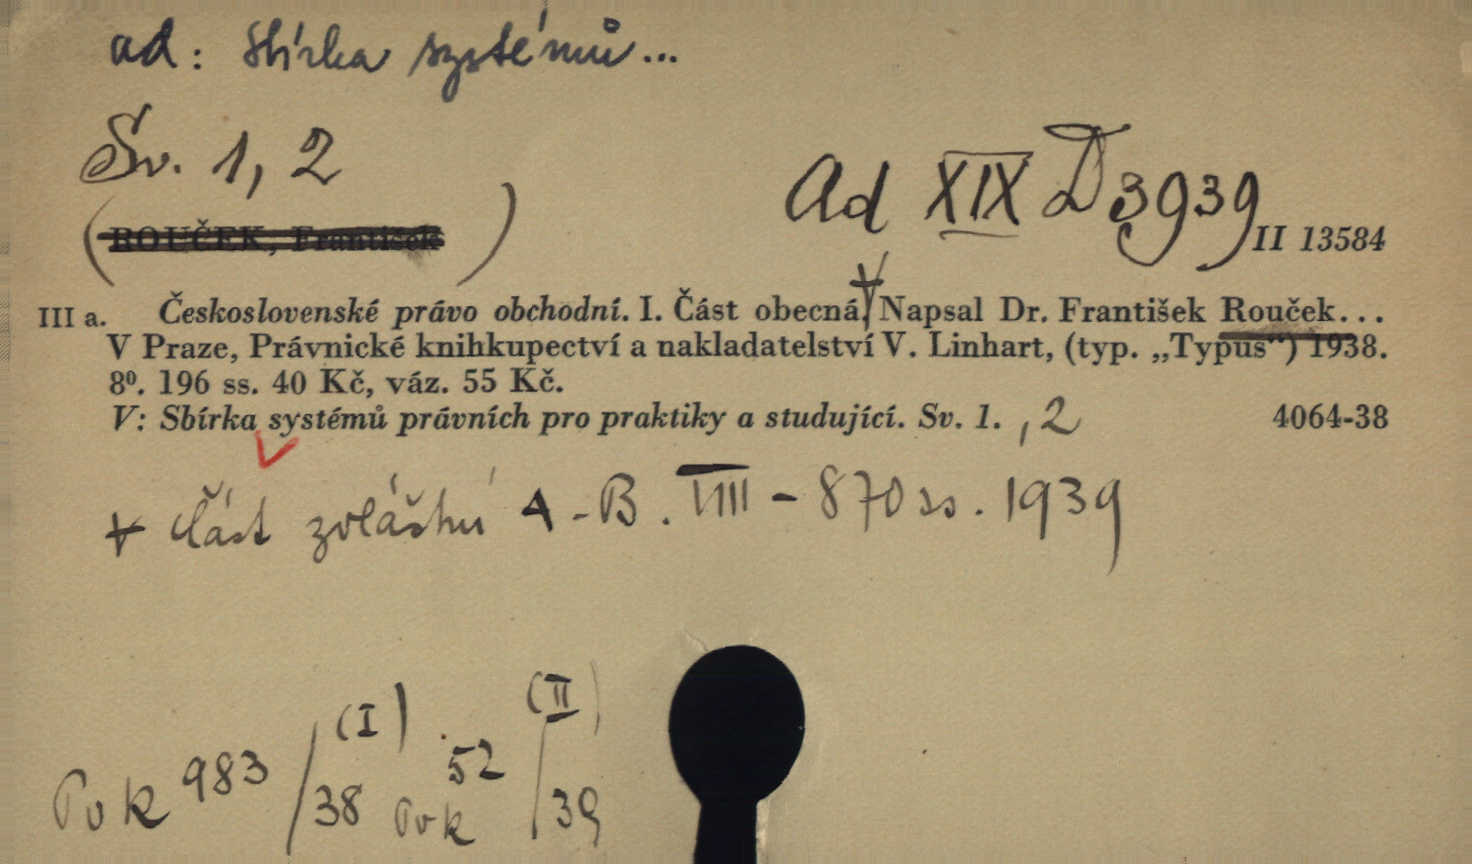 ad: Sbírka systémů...
Sv. 1, 2
Ad XIX D 3939
(ROUČEK, František)
II 13584
III a. Československé právo obchodní. I. Část obecná, + Napsal Dr. František Rouček...
V Praze, Právnické knihkupectví a nakladatelství V. Linhart, (typ. „Typus“) 1938.
8⁰. 196 ss. 40 Kč, váz. 55 Kč.
V: Sbírka systémů právních pro praktiky a studující. Sv. 1. , 2 4064-38
+ část zvláštní A - B. VIII - 870 ss. 1939
(I) (II)
Pvk 983/38 Pvk 52/39